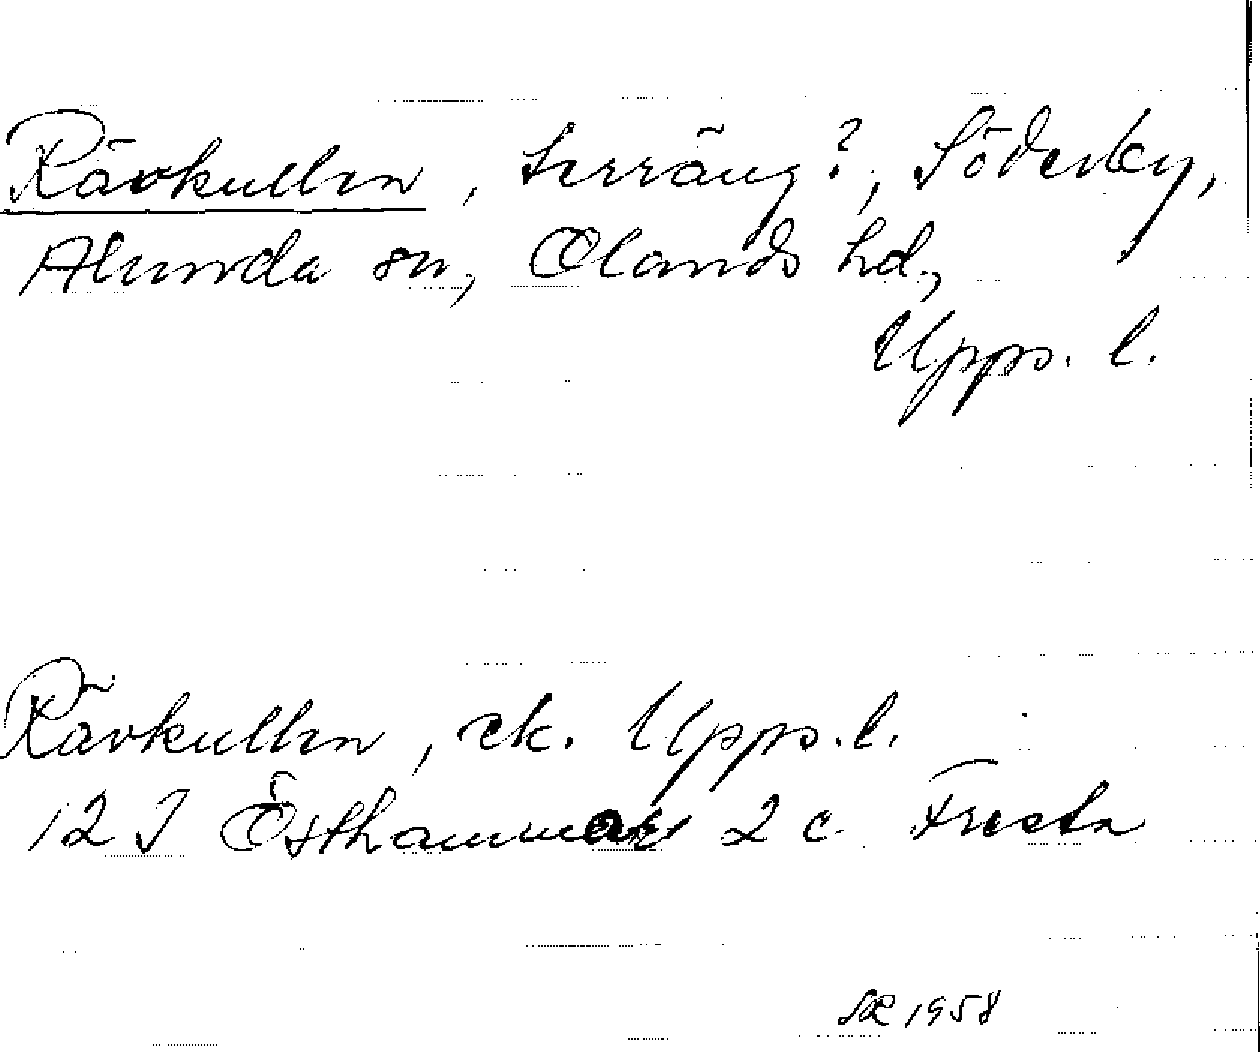 Rävkullen, terräng?, Söderby,
Alunda sn, Olands hd,
Upps. l.
Rävkullen, ek. Upps. l.
12 I Östhammar 2 c. Fresta
1958